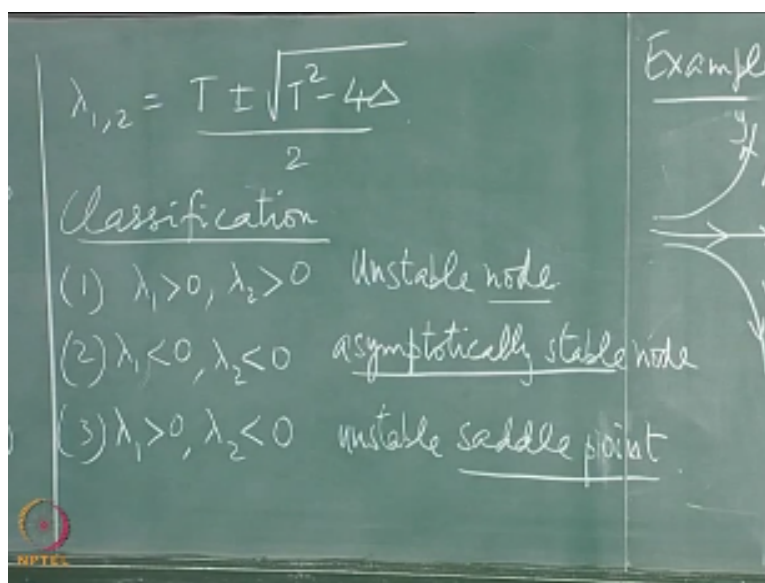 λ₁,₂ = T ± √(T² - 4Δ) / 2
Classification
(1) λ₁>0, λ₂>0 Unstable node
(2) λ₁<0, λ₂<0 asymptotically stable node
(3) λ₁>0, λ₂<0 unstable saddle point
Example
y
NPTEL